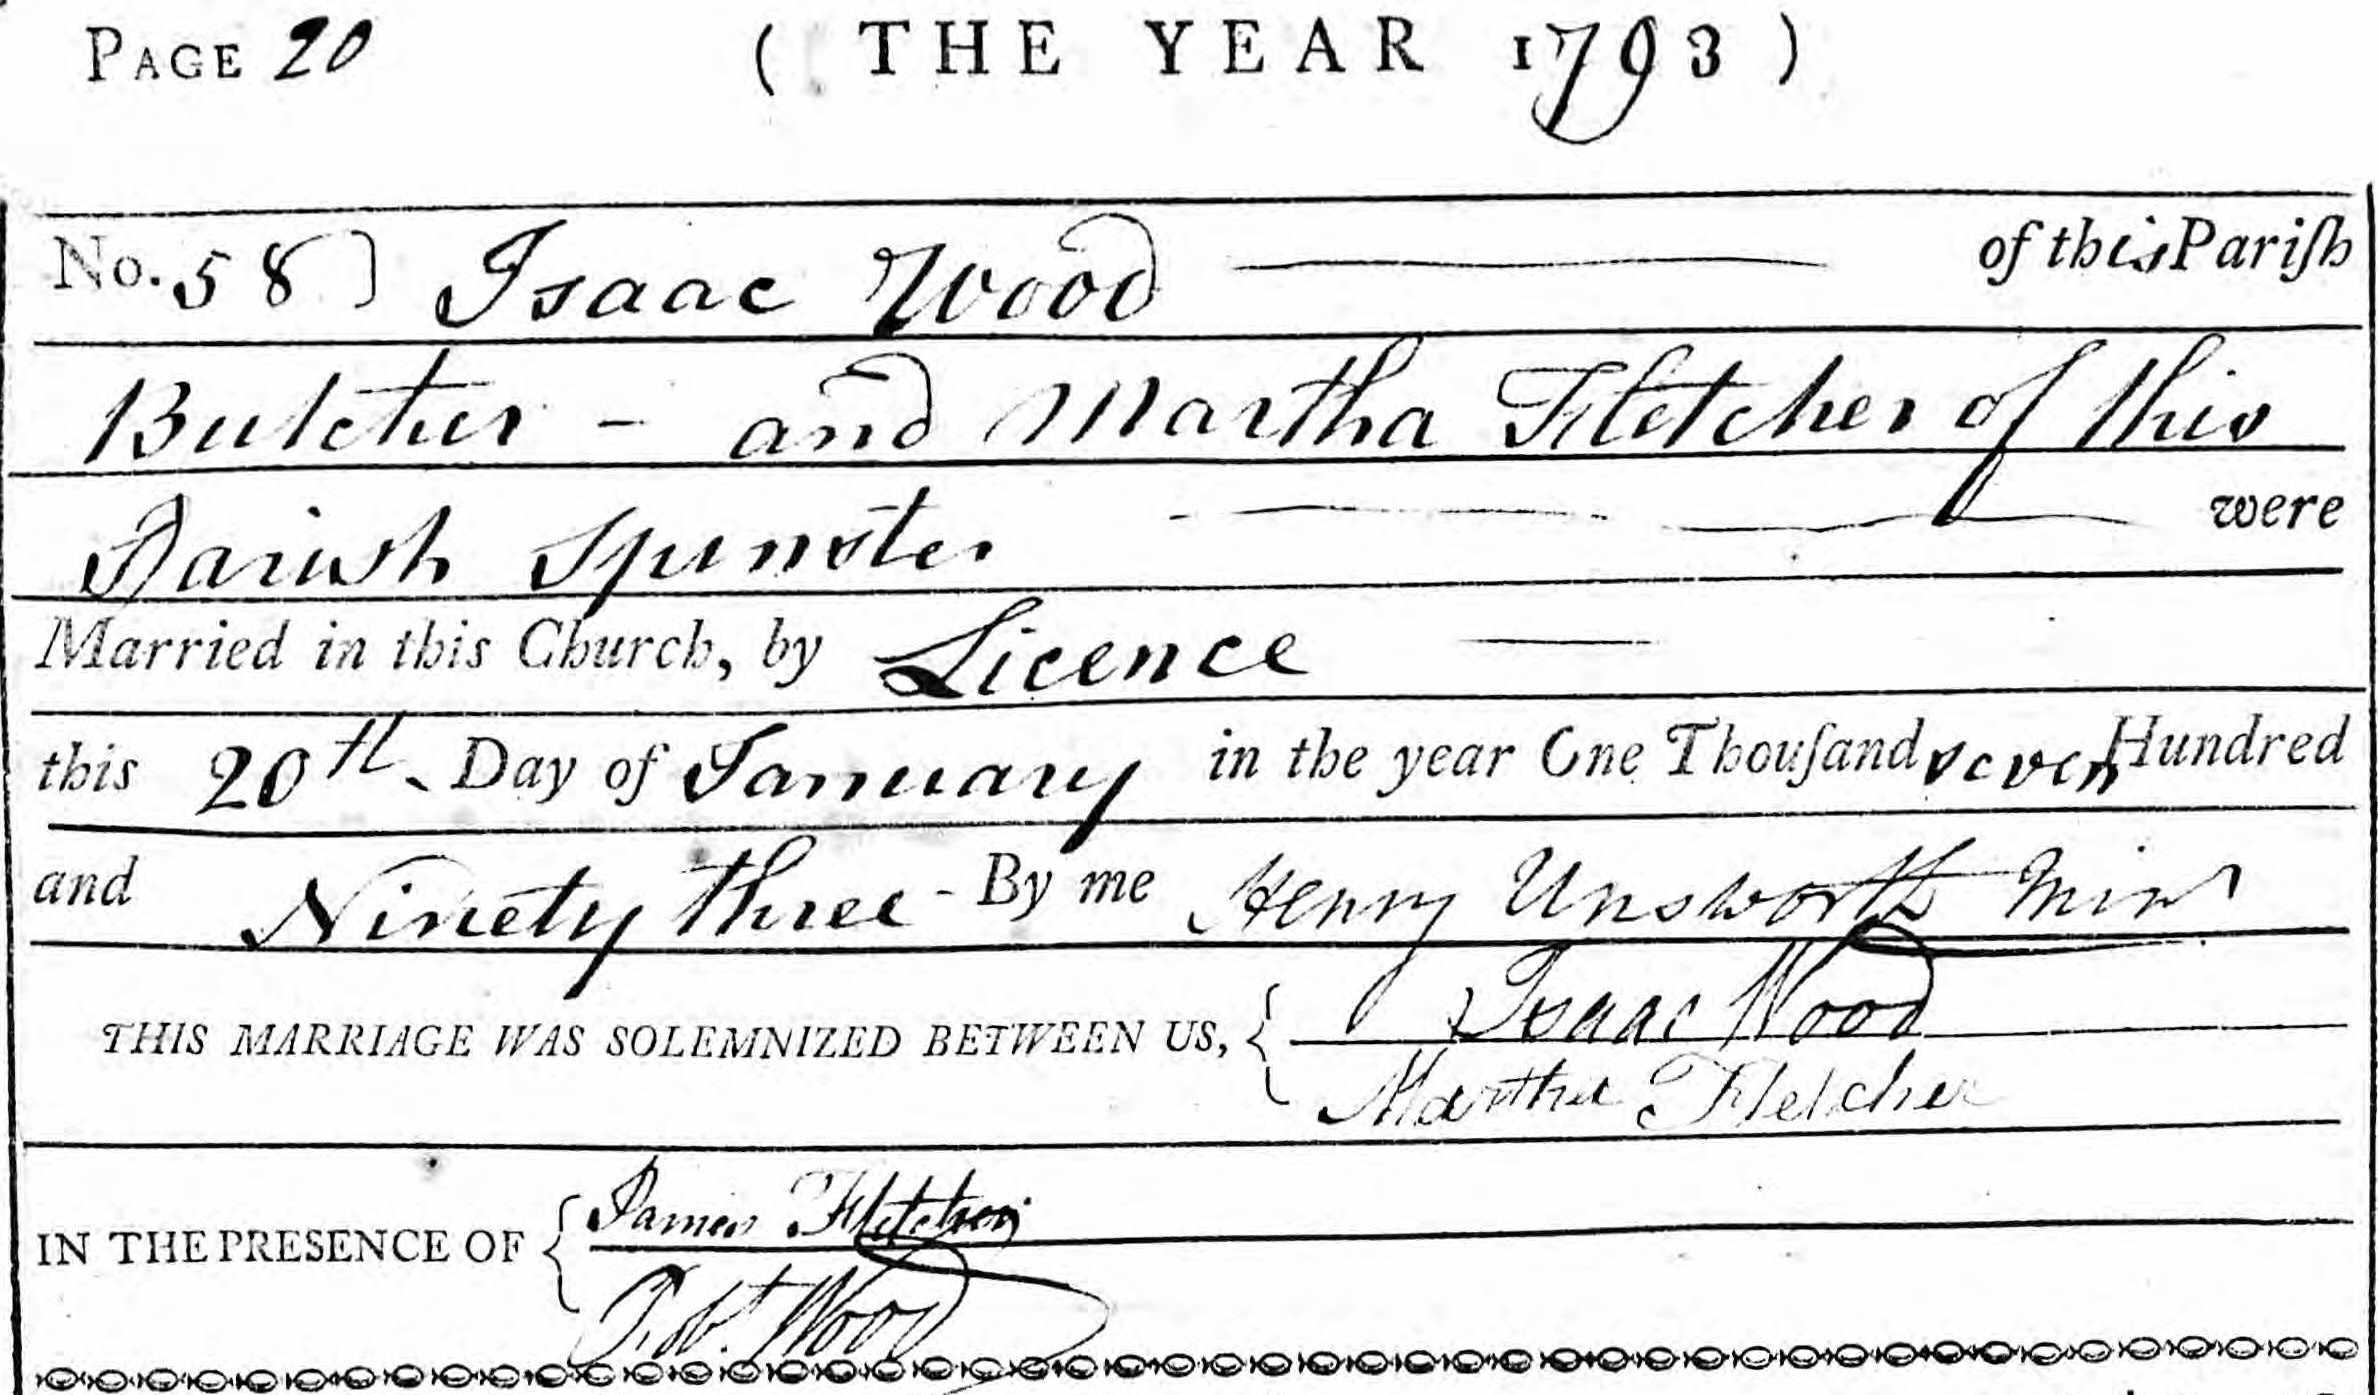 PAGE 20 ( THE YEAR 1793 )
No. 58 ] Isaac Wood of this Pariſh
Butcher - and Martha Fletcher of this
Parish Spinster were
Married in this Church, by Licence
this 20th Day of January in the year One Thouſand seven Hundred
and Ninety three - By me Henry Unsworth Minr
THIS MARRIAGE WAS SOLEMNIZED BETWEEN US, { Isaac Wood
Martha Fletcher
IN THE PRESENCE OF { James Fletcher
Robt. Wood